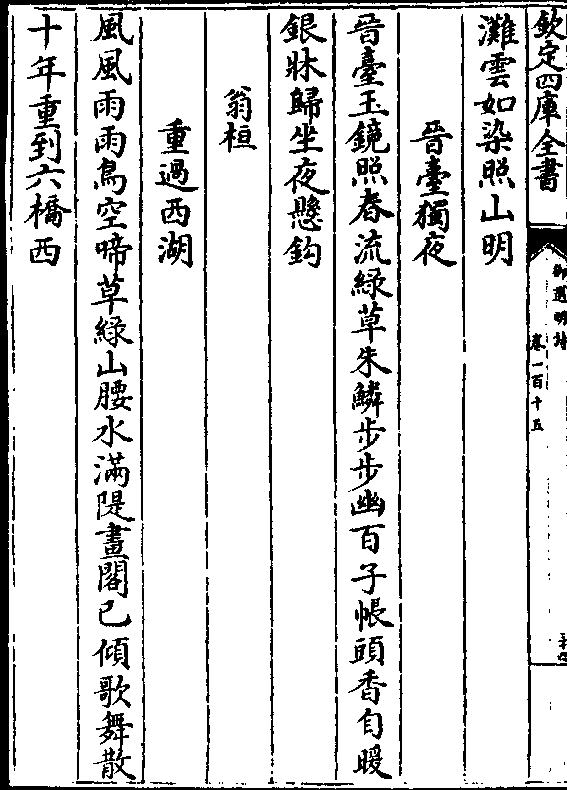 欽定四庫全書
御選明詩
卷一百十五
灘雲如染照山明
晉臺獨夜
晉臺玉鏡照春流綠草朱鱗步步幽百子帳頭香自暖
銀牀歸坐夜懸鈎
翁桓
重過西湖
風風雨雨鳥空啼草綠山腰水滿隄畫閣已傾歌舞散
十年重到六橋西